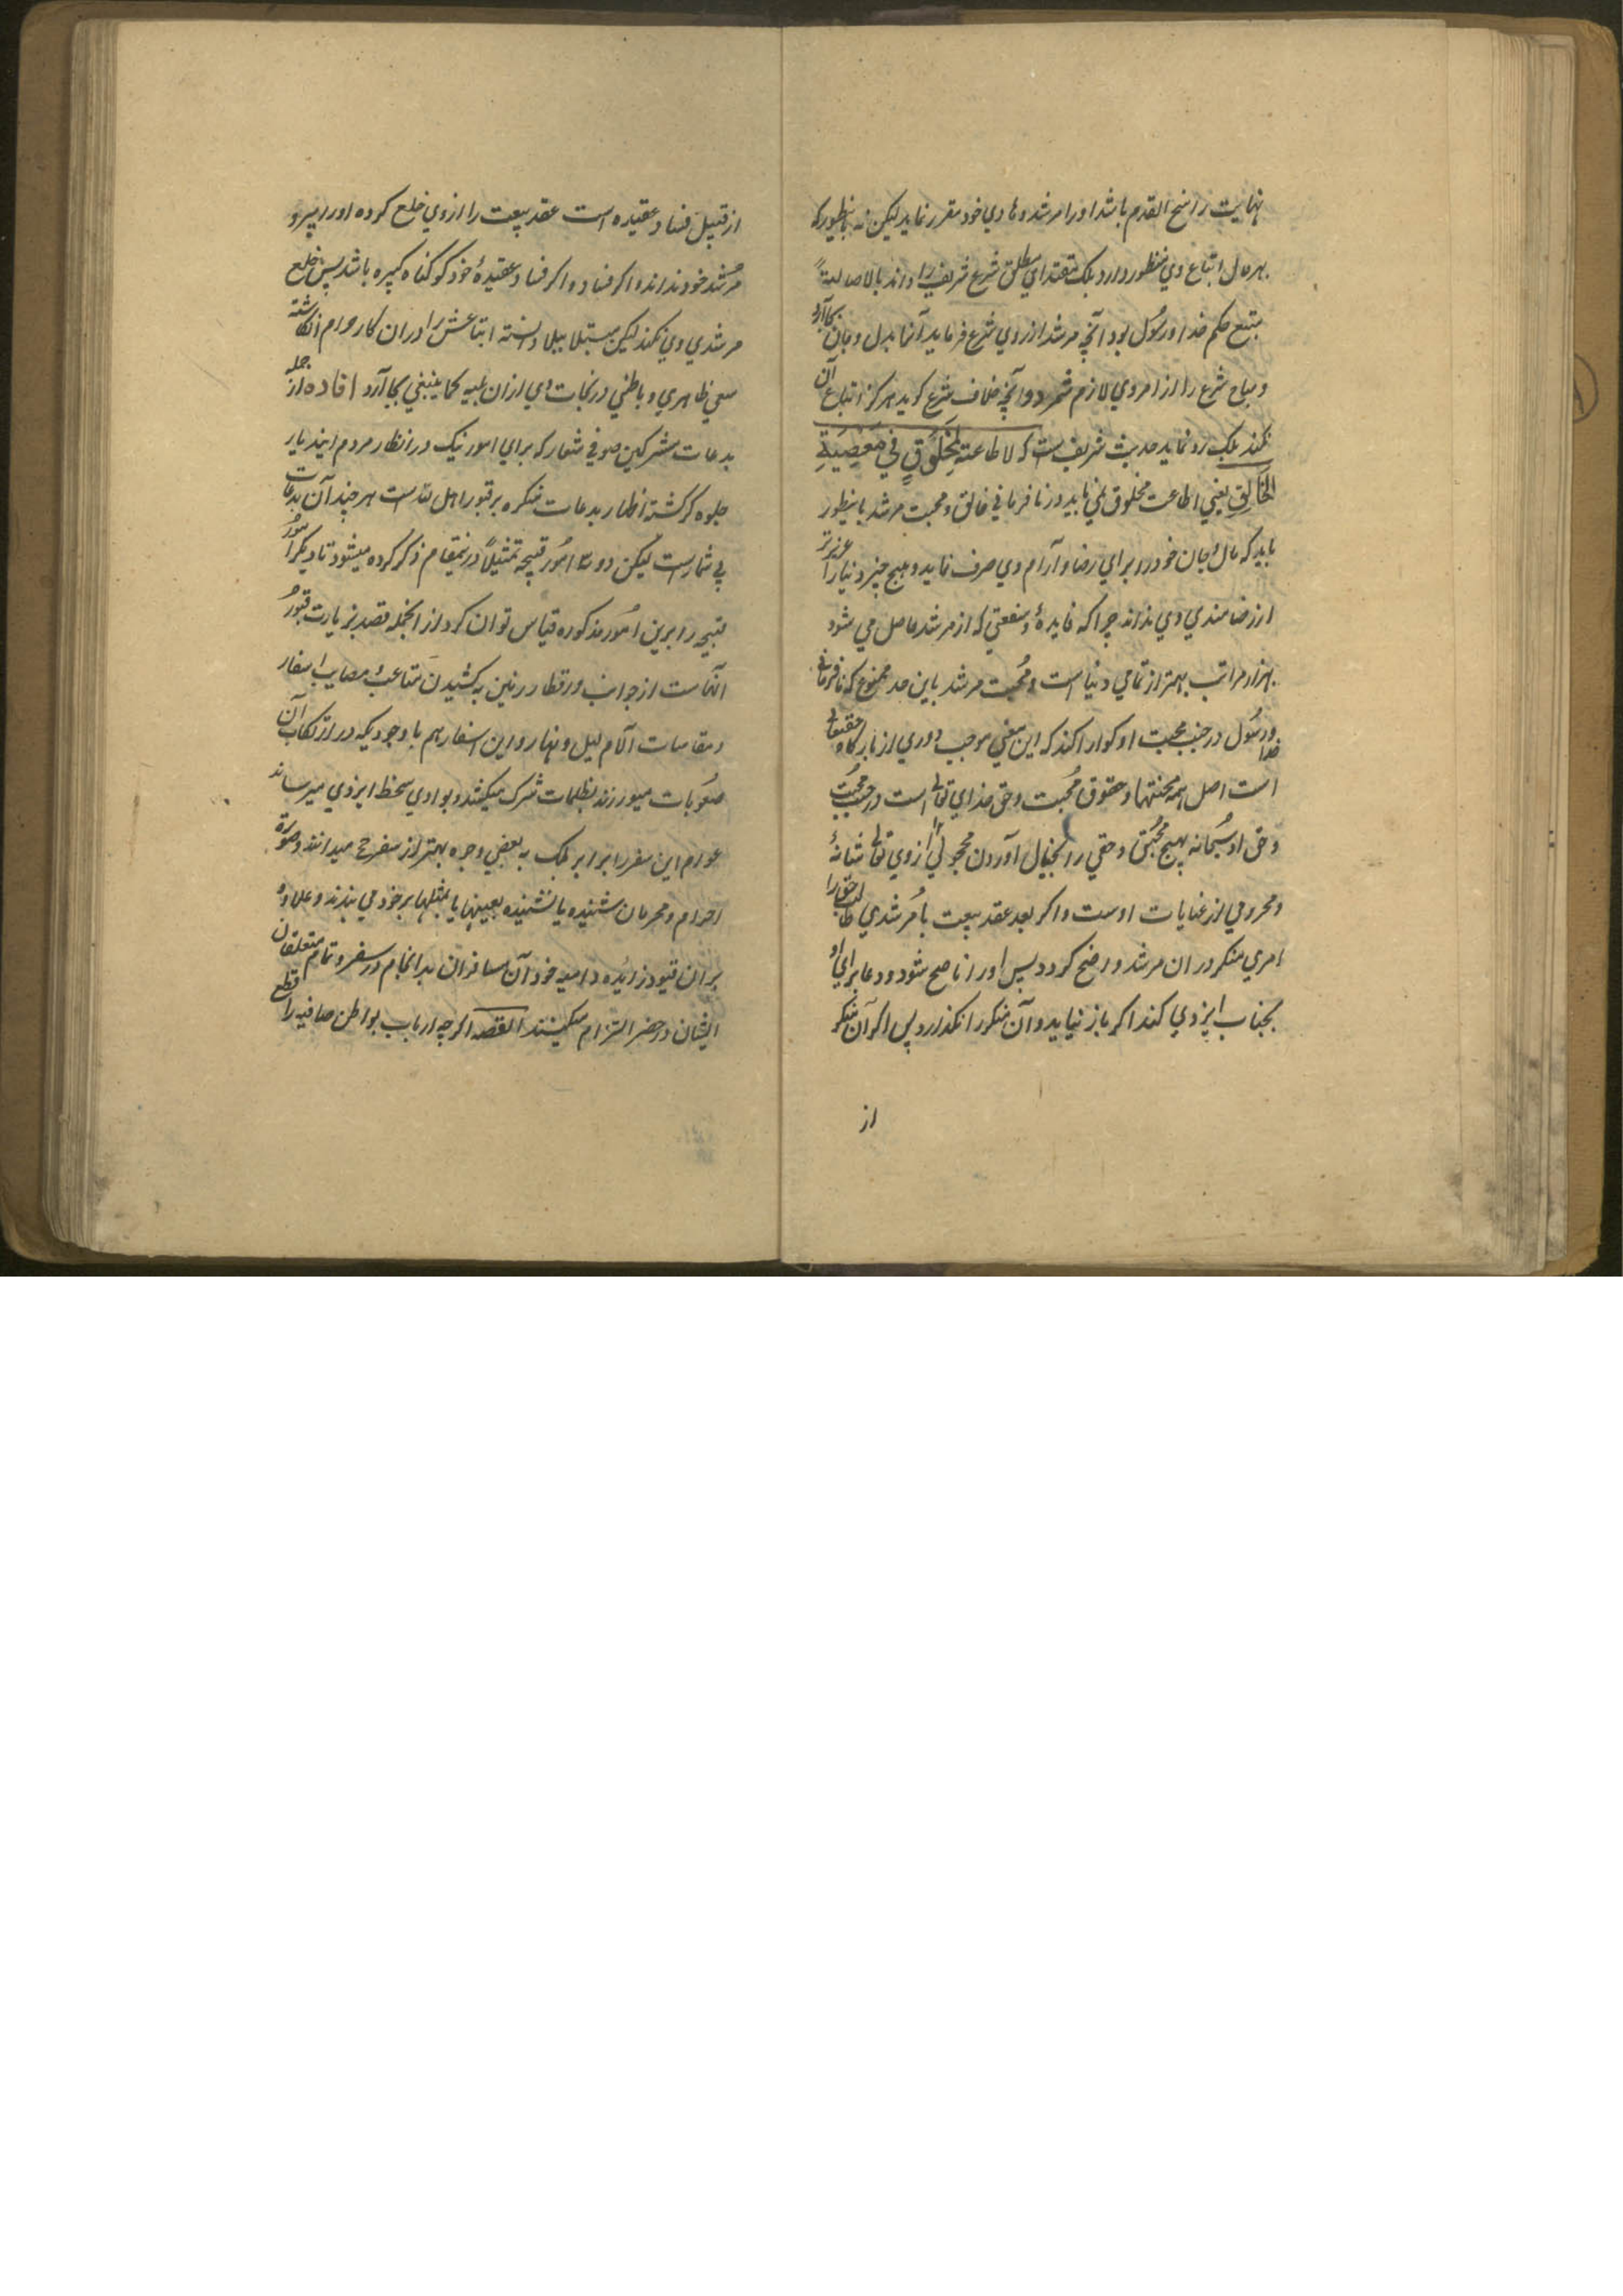 نهایت راسخ القدم باشد اورا مرشد و هادی خود مقرر نماید لیکن نه باینطور که
بهر حال اتباع وی منظور دارد بلکه مقتدای مطلق شرع شریف را داند بالاصالة
متبع حکم خدا و رسول بود آنچه مرشد از روی شرع فرماید آنرا بدل و جان بجا آرد
و مباح شرع را از امر وی لازم شمرد و آنچه خلاف شرع گوید هرگز اتباع آن
نکند بلکه رد نماید حدیث شریف است که لا طاعة لمخلوق في معصية
الخالق یعنی اطاعت مخلوق نمی باید در نافرمانی خالق و محبت مرشد باینطور
باید که مال و جان خود را برای رضا و آرام وی صرف نماید و هیچ چیز دنیا را عزیزتر
از رضامندی وی نداند چرا که فایده و منفعتی که از مرشد حاصل می شود
بهزار مراتب بهتر از تمامی دنیا است و محبت مرشد باین حد ممنوع که نافرمانی
خدا و رسول در جنب محبت او گوارا کند که این معنی موجب دوری از بارگاه حقیقی
است اصل همه محبتها و حقوق محبت و حق خدای تعالی است در جنب محبت
و حق او سبحانه هیچ محبتی و حقی را بخیال آوردن محجوبی از وی تعالی شانه
و محرومی از عنایات اوست و اگر بعد عقد بیعت با مرشدی طالب حق را
امری منکر در آن مرشد واضح گردد پس اورا ناصح شود و دعا برای او
بجناب ایزدی کند اگر باز نیاید و آن منکر را نگذارد پس اگر آن منکر
از
از قبیل فساد عقیده است عقد بیعت را از وی خلع کرده اورا پیر و
مرشد خود نداند و اگر فساد عقیده خود گو گناه کبیره باشد پس خلع
مرشدی وی نکند لیکن مبتلا ببلا دانسته اتباعش را در آن کار حرام انگاشته
سعی ظاهری و باطنی در نجات وی از آن بلیه کما ینبغی بجا آرد افاده از جمله
بدعات مشرکین صوفی شعار که برای امور نیک در انظار مردم این دیار
جلوه گر گشته اظهار بدعات منکره بر قبور اهل الله است هر چند آن بدعات
بی شمار است لیکن دو سه امور قبیحه تمثیلا درینمقام ذکر کرده میشود تا دیگر امور
قبیحه را برین امور مذکوره قیاس توان کرد از انجمله قصد زیارت قبور
آنهاست از جوانب و اقطار زمین به کشیدن متاعب و مصایب اسفار
و مقاسات آلام لیل و نهار و این اسفار هم با وجودیکه در ارتکاب آن
صعوبات میورزند بظلمات شرک میکشد و بوادی سخط ایزدی میرساند
عوام این سفر را برابر بلکه به بعضی وجوه بهتر از سفر حج میدانند و صورة
احرام و محرمان شنیده یا نشنیده بعینها یا بمثلها بر خود می بندند و علاوه
بر آن قیود زائده داعیه خود آن مسافران بدانجام در سفر و تمام متعلقان
ایشان در حضر التزام میکنند القصه اگر چه ارباب بواطن صافیه را قطع